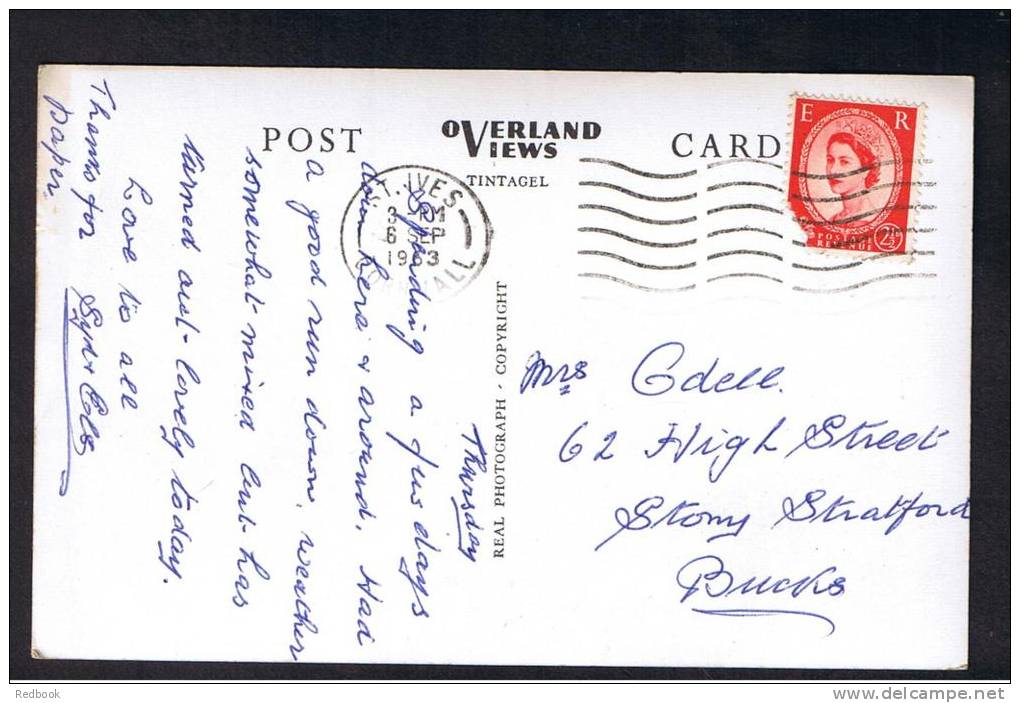 POST
OVERLAND
VIEWS
TINTAGEL
CARD
E R
POSTAGE
REVENUE
2½
ST. IVES
3 - PM
6 SEP
1963
CORNWALL
REAL PHOTOGRAPH - COPYRIGHT
Thursday
Spending a few days
down here & around. Had
a good run down, weather
somewhat mixed but has
turned out lovely today.
Love to all
Syd &
Thanks for
paper.
Mrs Odell.
62 High Street
Stony Stratford
Bucks
Redbook
www.delcampe.net